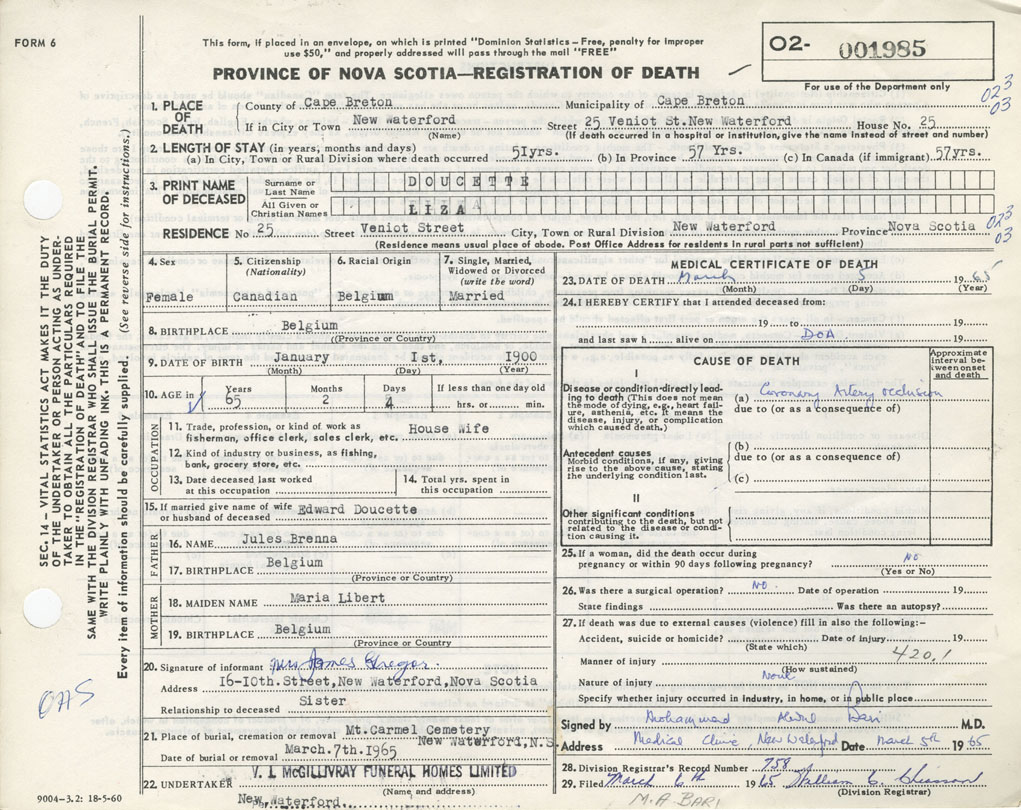 FORM 6
This form, if placed in an envelope, on which is printed "Dominion Statistics – Free, penalty for improper
use $50," and properly addressed will pass through the mail "FREE"
PROVINCE OF NOVA SCOTIA—REGISTRATION OF DEATH
02- 001985
For use of the Department only
023
03
1. PLACE OF DEATH
County of Cape Breton Municipality of Cape Breton
If in City or Town New Waterford (Name) Street 25 Veniot St.New Waterford House No. 25
(If death occurred in a hospital or institution, give the name instead of street and number)
2. LENGTH OF STAY (in years, months and days)
(a) In City, Town or Rural Division where death occurred 5Iyrs. (b) In Province 57 Yrs. (c) In Canada (if immigrant) 57yrs.
3. PRINT NAME OF DECEASED
Surname or Last Name DOUCETTE
All Given or Christian Names LIZA
023
03
RESIDENCE No. 25 Street Veniot Street City, Town or Rural Division New Waterford Province Nova Scotia
(Residence means usual place of abode. Post Office Address for residents in rural parts not sufficient)
4. Sex
Female
5. Citizenship (Nationality)
Canadian
6. Racial Origin
Belgium
7. Single, Married, Widowed or Divorced (write the word)
Married
8. BIRTHPLACE Belgium
((Province or Country)
9. DATE OF BIRTH January Ist, 1900
(Month) (Day) (Year)
10. AGE in Years 65 Months 2 Days 4 If less than one day old hrs. or min.
OCCUPATION
11. Trade, profession, or kind of work as fisherman, office clerk, sales clerk, etc. House Wife
12. Kind of industry or business, as fishing, bank, grocery store, etc.
13. Date deceased last worked at this occupation
14. Total yrs. spent in this occupation
15. If married give name of wife or husband of deceased Edward Doucette
FATHER
16. NAME Jules Brenna
17. BIRTHPLACE Belgium
(Province or Country)
MOTHER
18. MAIDEN NAME Maria Libert
19. BIRTHPLACE Belgium
(Province or Country
20. Signature of informant Mrs James Gregor.
Address I6-I0th.Street,New Waterford,Nova Scotia
Relationship to deceased Sister
21. Place of burial, cremation or removal Mt.Carmel Cemetery
New Waterford,N.S.
Date of burial or removal March.7th.1965
22. UNDERTAKER V. J. McGILLIVRAY FUNERAL HOMES LIMITED
(Name and address)
New Waterford.
MEDICAL CERTIFICATE OF DEATH
23. DATE OF DEATH March 5 1965
(Month) (Day) (Year)
24. I HEREBY CERTIFY that I attended deceased from:
19 to 19
and last saw h alive on DOA 19
CAUSE OF DEATH
Approximate interval between onset and death
I
Disease or condition-directly leading to death (This does not mean the mode of dying, e.g., heart failure, asthenia, etc. It means the disease, injury, or complication which caused death.)
(a) Coronary Artery occlusion
due to (or as a consequence of)
Antecedent causes
Morbid conditions, if any, giving rise to the above cause, stating the underlying condition last.
(b)
due to (or as a consequence of)
(c)
II
Other significant conditions
contributing to the death, but not related to the disease or condition causing it.
25. If a woman, did the death occur during pregnancy or within 90 days following pregnancy? No
(Yes or No)
26. Was there a surgical operation? No. Date of operation 19
State findings Was there an autopsy?
27. If death was due to external causes (violence) fill in also the following:–
Accident, suicide or homicide? Date of injury 19
(State which)
420.1
Manner of injury
(How sustained)
Nature of injury None
Specify whether injury occurred in industry, in home, or in public place
Signed by Mohammad Bari M.D.
Address Medical Clinic, New Waterford Date March 5th 1965
28. Division Registrar's Record Number 758
29. Filed March 6th 1965 William C. Chiasson
(Division Registrar)
M.A BARI
9004–3.2: 18-5-60
SEC. 14 – VITAL STATISTICS ACT MAKES IT THE DUTY
OF THE UNDERTAKER OR PERSON ACTING AS UNDER-
TAKER TO OBTAIN ALL THE PARTICULARS REQUIRED
IN THE "REGISTRATION OF DEATH" AND TO FILE THE
SAME WITH THE DIVISION REGISTRAR WHO SHALL ISSUE THE BURIAL PERMIT.
WRITE PLAINLY WITH UNFADING INK. THIS IS A PERMANENT RECORD.
Every item of information should be carefully supplied. (See reverse side for instructions.)